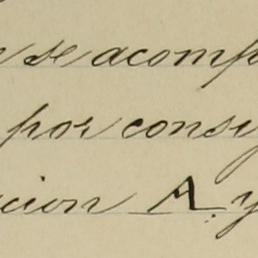 se acomp
por consi
cion A. y